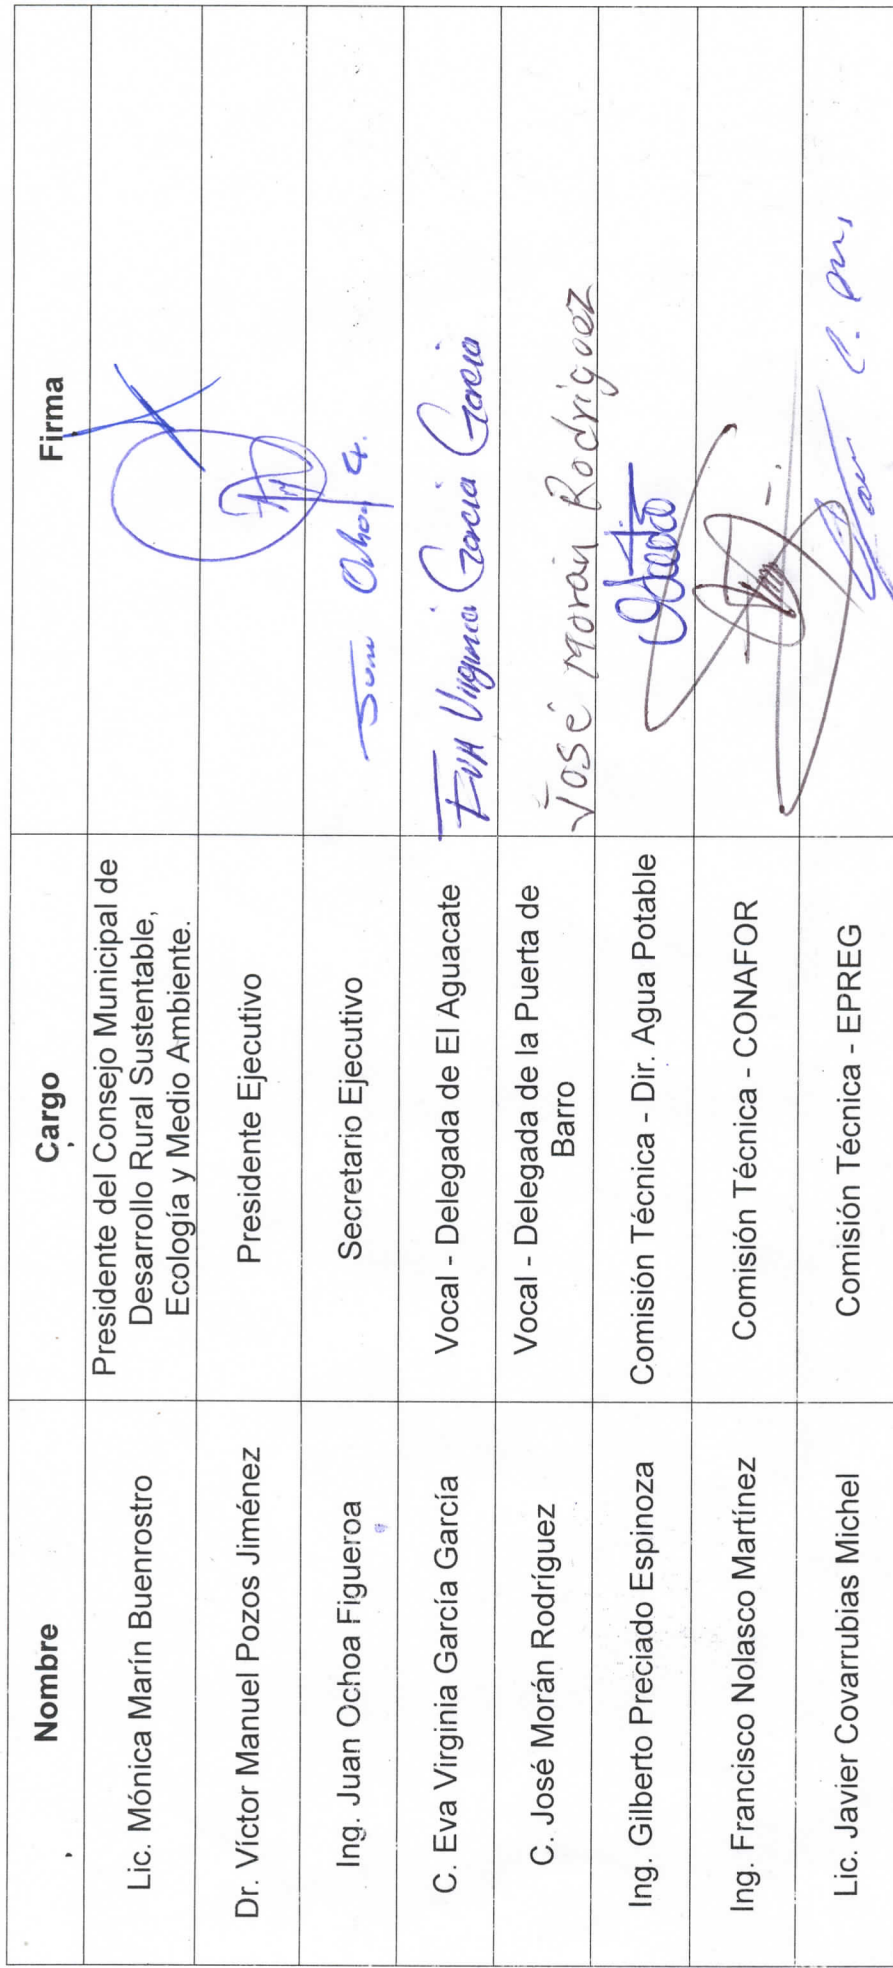 Nombre
Cargo
Firma
Lic. Mónica Marín Buenrostro
Presidente del Consejo Municipal de
Desarrollo Rural Sustentable,
Ecología y Medio Ambiente.
Dr. Víctor Manuel Pozos Jiménez
Presidente Ejecutivo
Ing. Juan Ochoa Figueroa
Secretario Ejecutivo
C. Eva Virginia García García
Vocal - Delegada de El Aguacate
EVA Virginia Garcia Garcia
C. José Morán Rodríguez
Vocal - Delegada de la Puerta de
Barro
José Morán Rodríguez
Ing. Gilberto Preciado Espinoza
Comisión Técnica - Dir. Agua Potable
Ing. Francisco Nolasco Martínez
Comisión Técnica - CONAFOR
Lic. Javier Covarrubias Michel
Comisión Técnica - EPREG